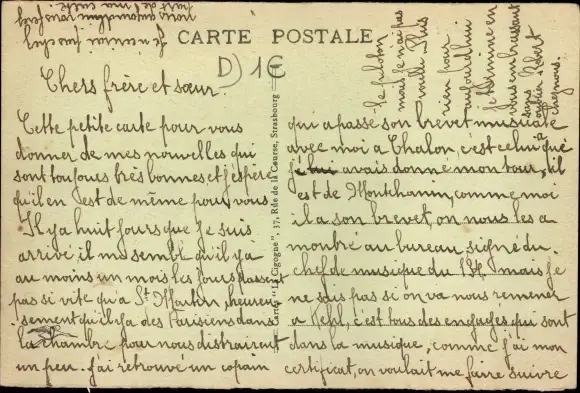 CARTE POSTALE
D) 1€
Chers frère et sœur.
Cette petite carte pour vous
donner de mes nouvelles qui
sont toujours très bonnes, et j'espère
qu'il en est de même pour vous.
Il y a huit jours que je suis
arrivé, il me semble qu'il y a
au moins un mois, les jours passent
pas si vite qu'a St Martin, heureu-
sement qu'il y a des Parisiens dans
la chambre pour nous distraire
un peu. j'ai retrouvé un copain
Cartes "La Cigogne", 37, Rue de la Course, Strasbourg
qui a passé son brevet musicale
avec moi a Chalon, c'est celui que
j'e lui avais donné mon tour, il
est de Montchanin, comme moi
il a son brevet, on nous les a
montré au bureau, signé du
chef de musique du mais je
ne sais pas si on va nous remener
a Kehl, c'est tous des engagés qui sont
dans la musique, comme j'ai mon
certificat, on voulait me faire suivre
le peloton
mais je n'ai pas
voulu. Plus
rien pour
aujourd'hui
je termine en
vous embrassant
sans oublier
chez nous.